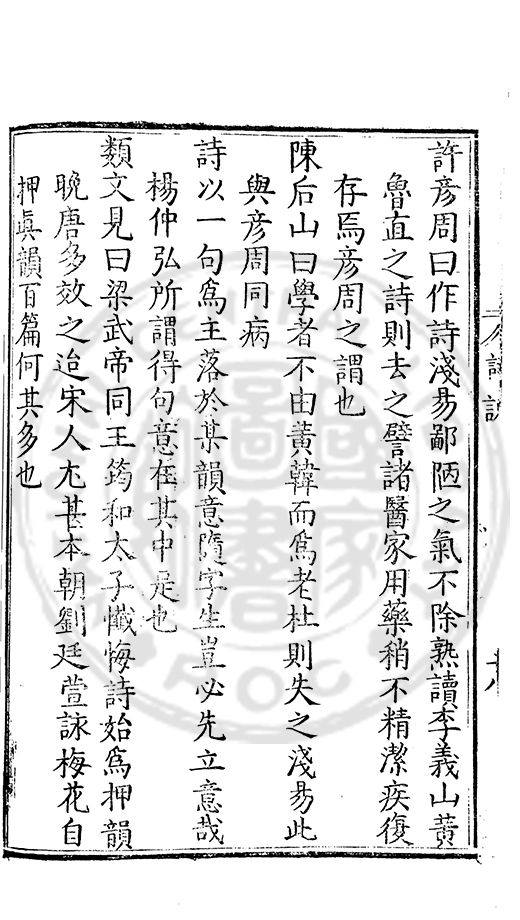 許彦周曰作詩淺昜鄙陋之氣不除熟讀李義山黃
魯直之詩則去之譬諸醫家用藥稍不精潔疾復
存焉彦周之謂也
陳后山曰學者不由黃韓而爲老杜則失之淺昜此
與彦周同病
詩以一句爲主落於某韻意隨字生豈必先立意哉
楊仲弘所謂得句意在其中是也
類文見曰梁武帝同王筠和太子懺悔詩始爲押韻
晚唐多效之迨宋人尤甚本朝劉廷萱詠梅花自
押眞韻百篇何其多也